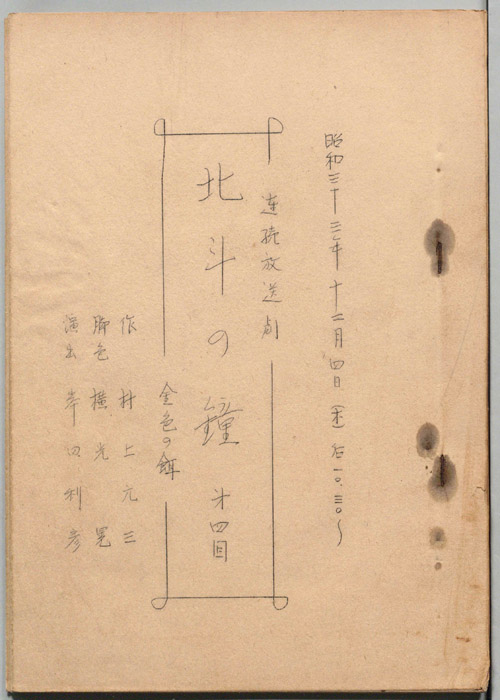 昭和三十三年十二月四日(木)后一〇.三〇〜
連続放送劇
北斗の鐘 第四回
金色の餌
作 村上元三
脚色 横光晃
演出 岸田利彦